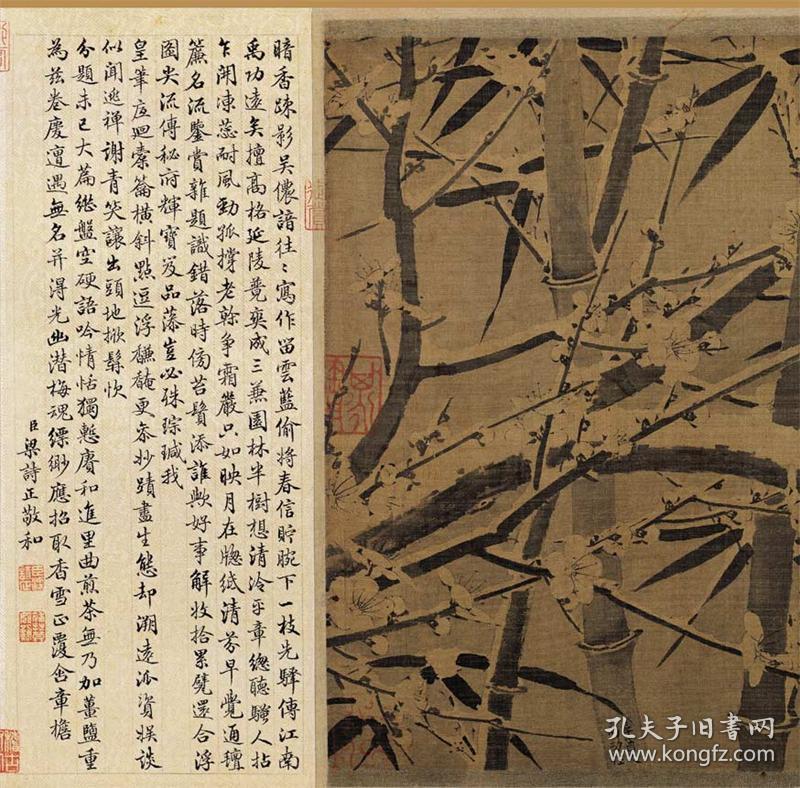 暗香疎影吴儂諳往〻寫作留雲藍偷將春信貯腕下一枝先驛傳江南
禹功遠矣擅高格延陵競爽成三兼園林半樹想清泠平章總聽騷人拈
乍開凍蕊耐風勁孤撐老榦爭霜嚴只如映月在牕紙清芬早覺通
簾名流鑒賞雜題識錯落時傍苔鬚添誰歟好事解收拾累甓還合浮
圖尖流傳秘府輝寶笈品藻豈必殊琮瑊我
皇筆應廻橐籥橫斜點逗浮馦馣更參妙蹟盡生態却溯遠派資娱談
似聞逃禪謝青笑讓出頭地掀髯忺
分題未已大篇繼盤空硬語吟情恬獨慙賡和進里曲煎茶無乃加薑鹽重
為兹卷慶遭遇無名并得光幽潜梅魂縹緲應招取香雪正覆舍章檐
臣梁詩正敬和
孔夫子旧书网
www.kongfz.com